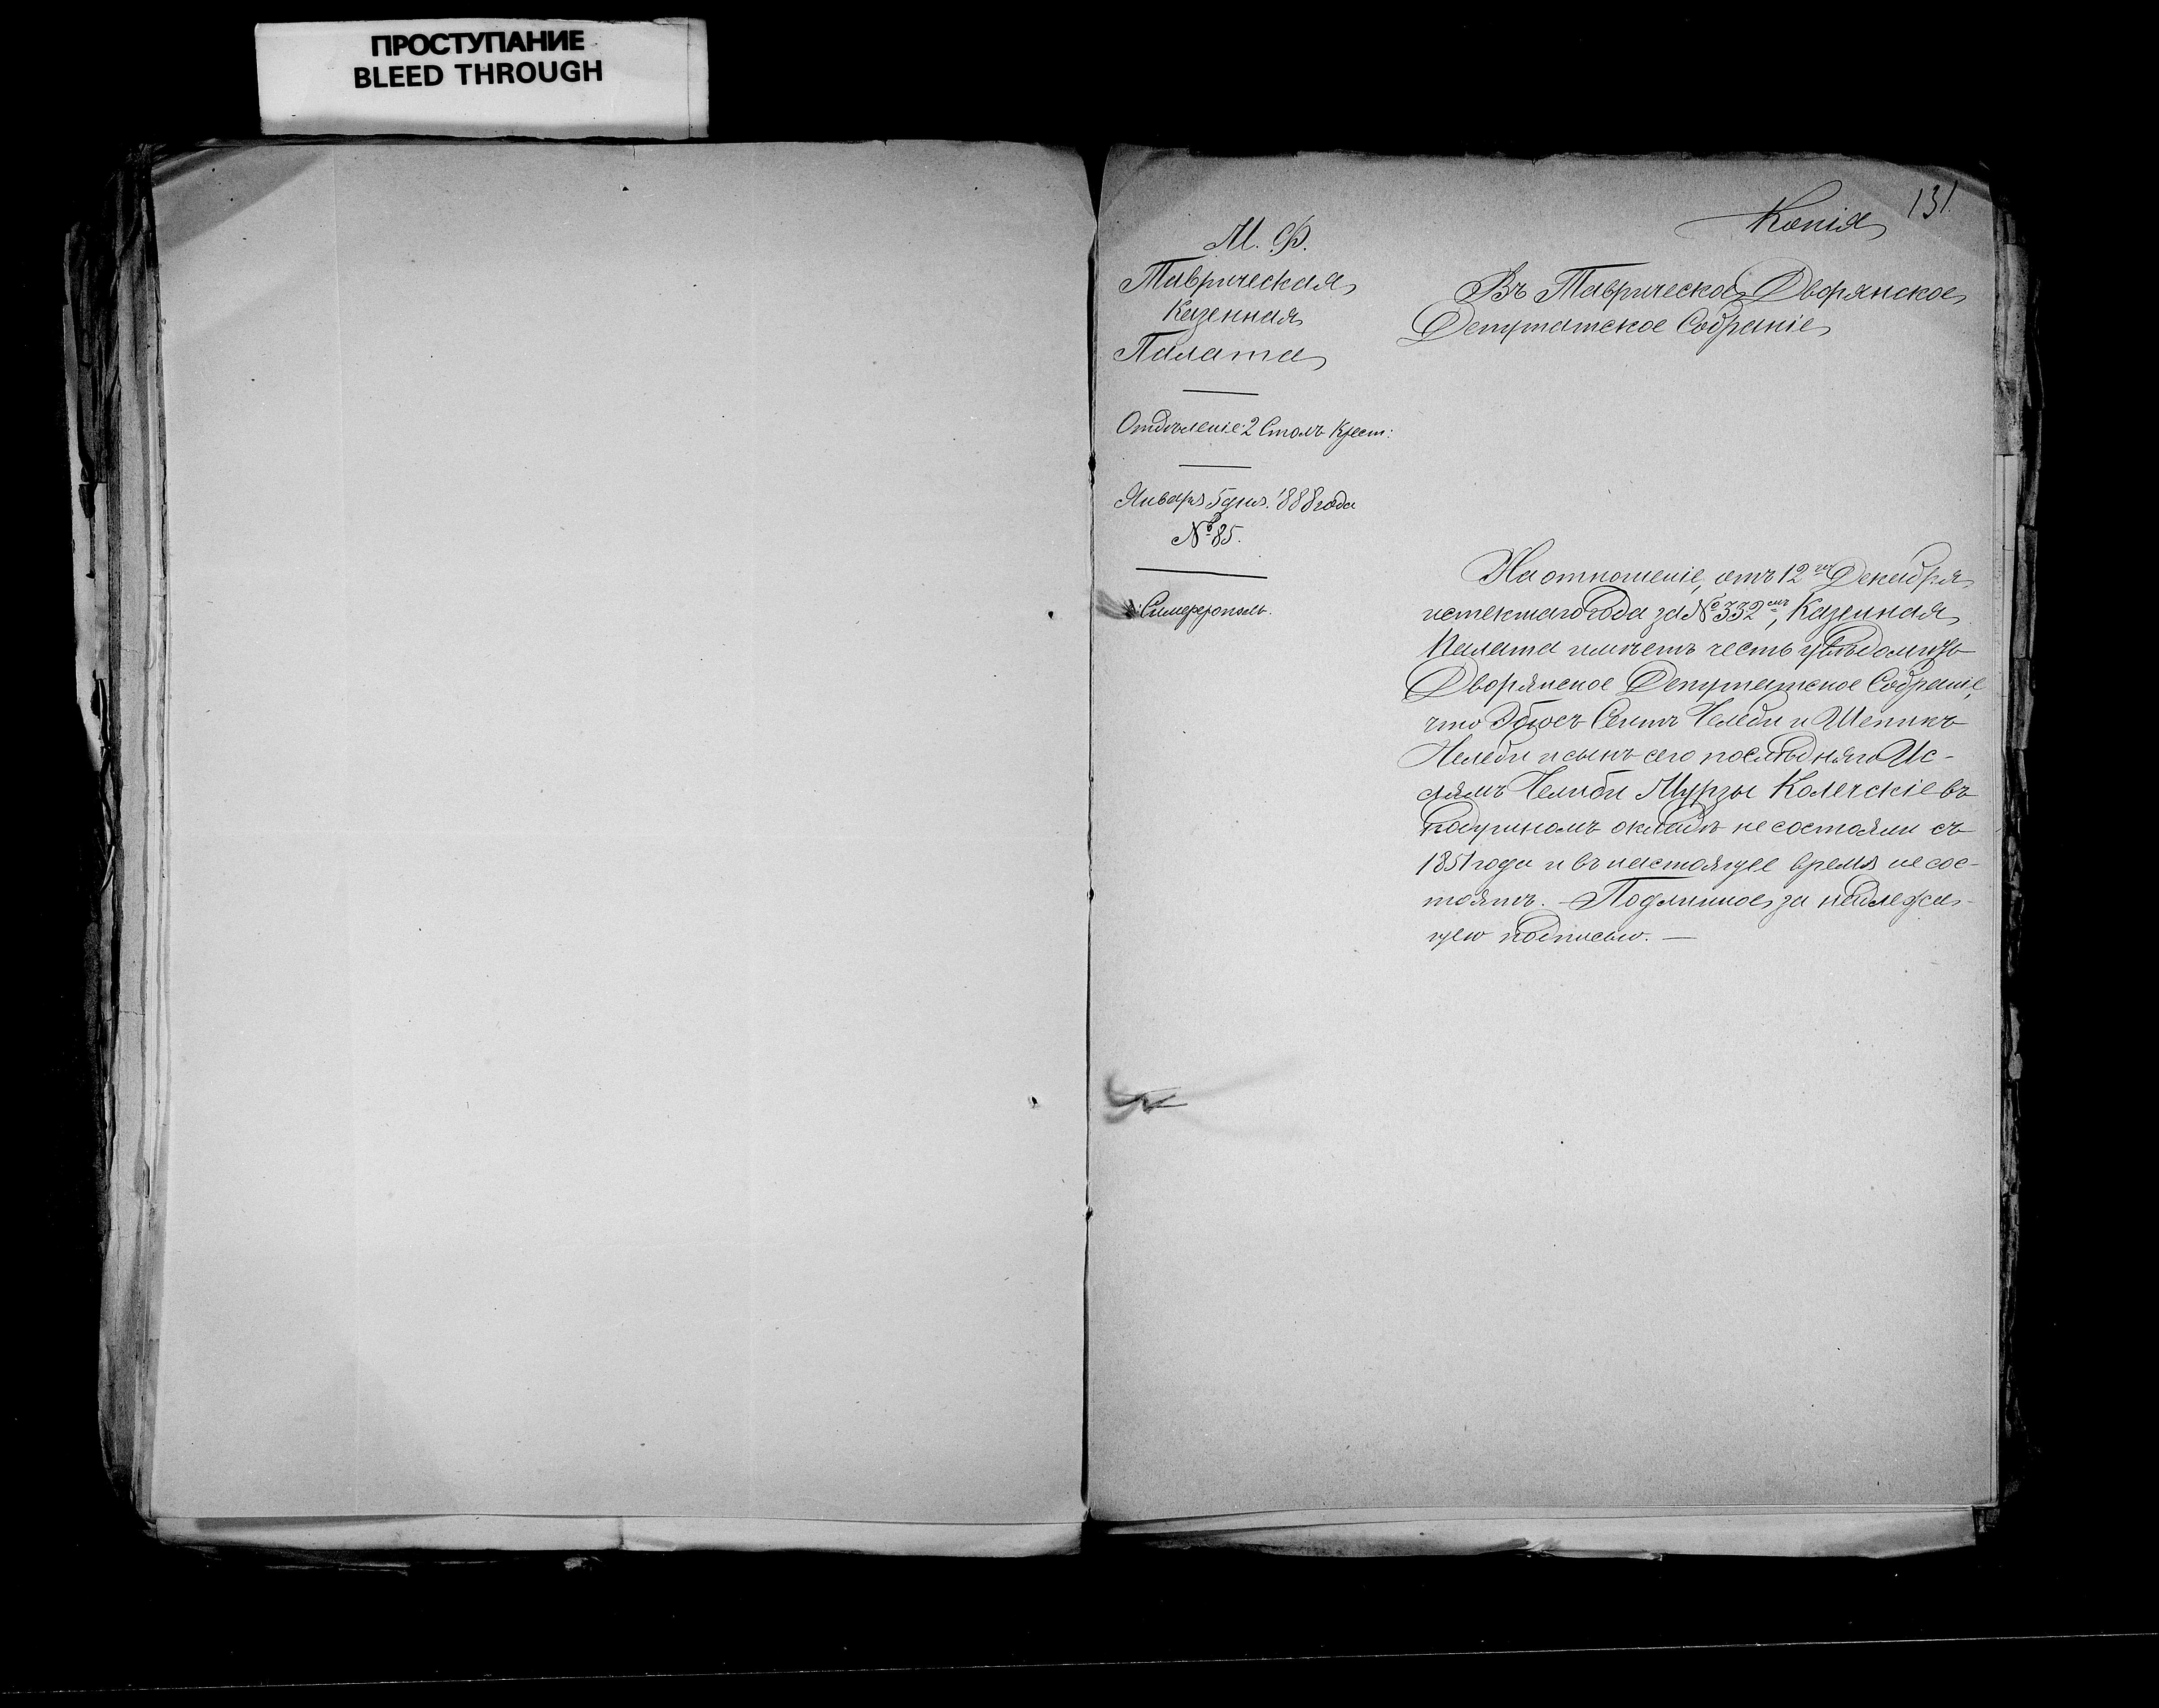 ПРОСТУПАНИЕ
BLEED THROUGH
131.
Копія
М. Ф.
Таврическая
Казенная
Палата
Отдѣленіе 2 Столъ Крест:
Января 5 дня 1888 года
№ 85.
г. Симферополь.
Въ Таврическое Дворянское
Депутатское Собраніе
На отношеніе, отъ 12го Декабря
истекшаго года за № 332мъ, Казенная
Палата имѣетъ честь увѣдомить
Дворянское Депутатское Собраніе,
что Сеитъ Челеби и
Челеби и сынъ сего послѣдняго Ис-
лямъ Челеби Мурзы въ
подушномъ окладѣ не состояли съ
1851 года и въ настоящее время не сос-
тоятъ. – Подлинное за надлежа-
щею подписью. –